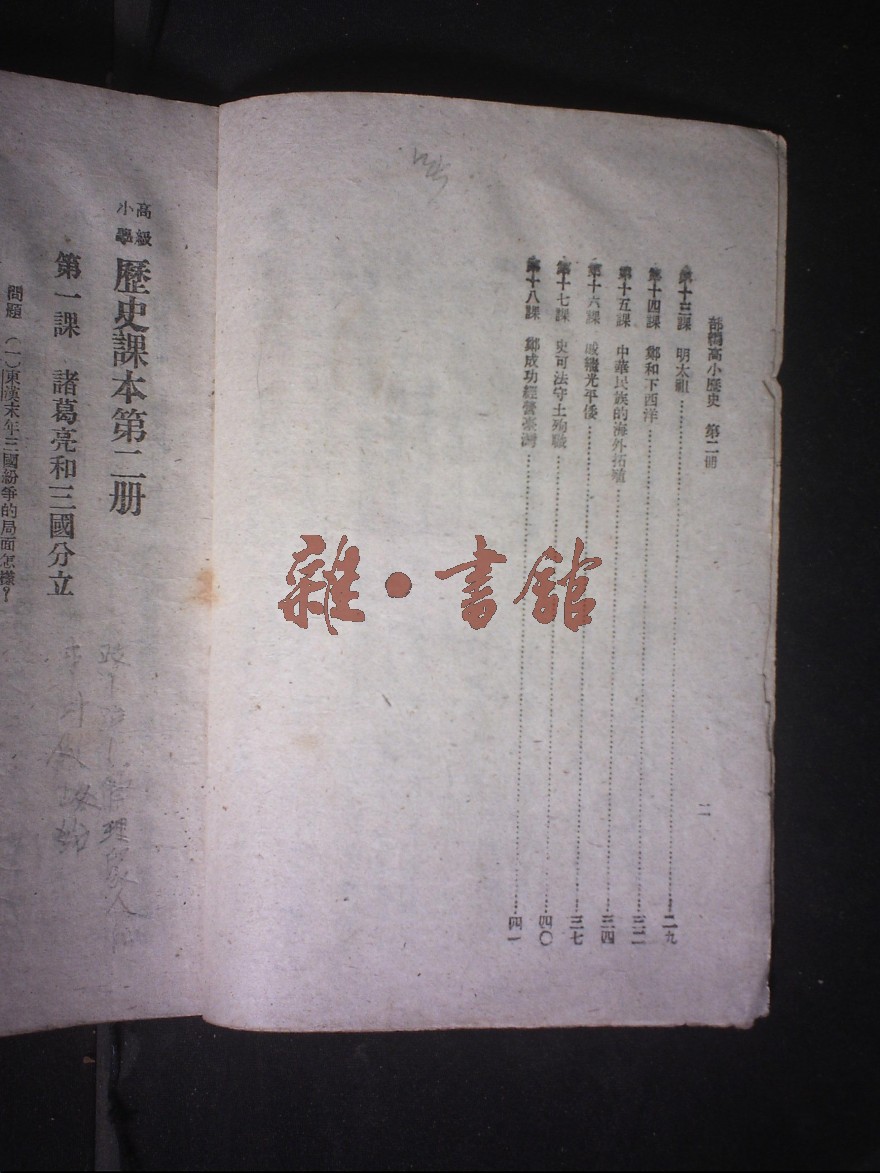 部編高小歷史 第二冊
二
第十三課 明太祖……二九
第十四課 鄭和下西洋……三二
第十五課 中華民族的海外拓殖……三四
第十六課 戚繼光平倭……三七
第十七課 史可法守土殉職……四〇
第十八課 鄭成功經營臺灣……四一
雜·書館
高級小學 歷史課本第二册
第一課 諸葛亮和三國分立
問題 (一)東漢末年三國紛爭的局面怎樣?
管理眾人